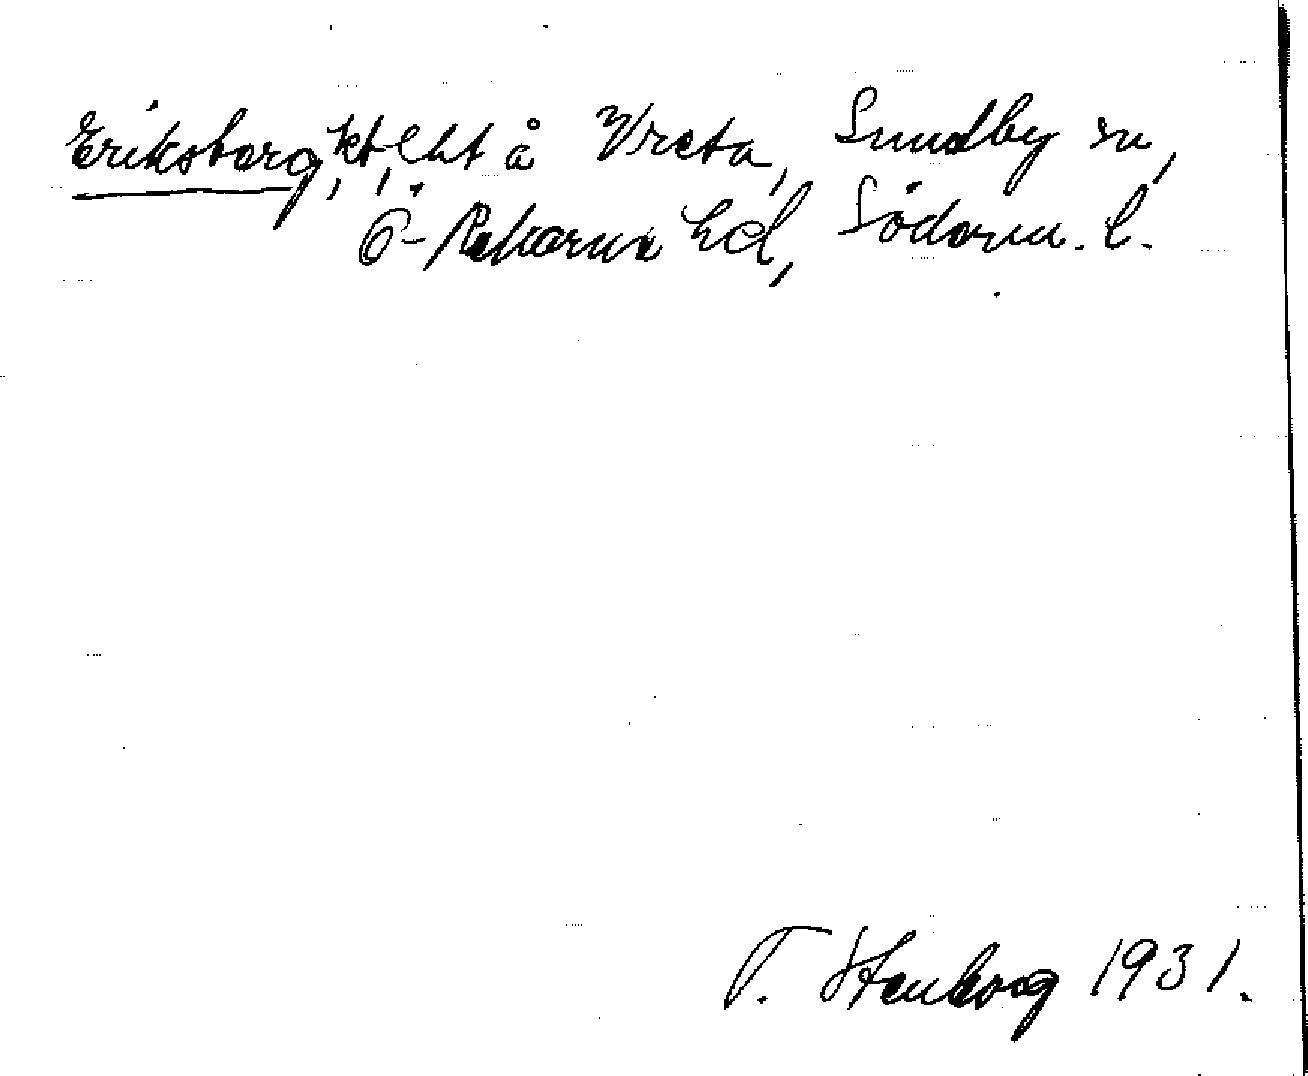 Eriksborg, kt, lht å Vreta, Sundby sn,
Ö-Rekarne hd, Söderm. l.
T. Stenborg 1931.